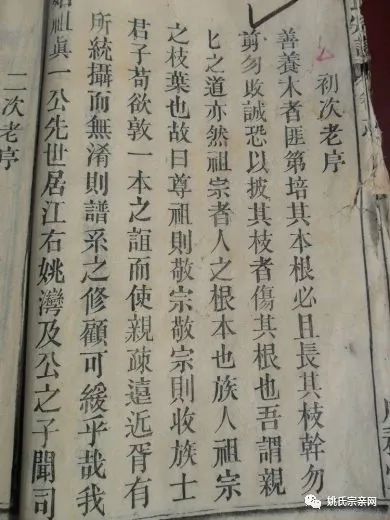 初次老序
善養木者匪第培其本根必且長其枝幹勿
剪勿敗誠恐以披其枝者傷其根也吾謂親
匕之道亦然祖宗者人之根本也族人祖宗
之枝葉也故曰尊祖則敬宗敬宗則收族士
君子苟欲敦一本之誼而使親疎遠近胥有
所統攝而無淆則譜系之修顧可緩乎哉我
始祖眞一公先世居江右姚灣及公之子聞司
二次老序
姚氏宗亲网